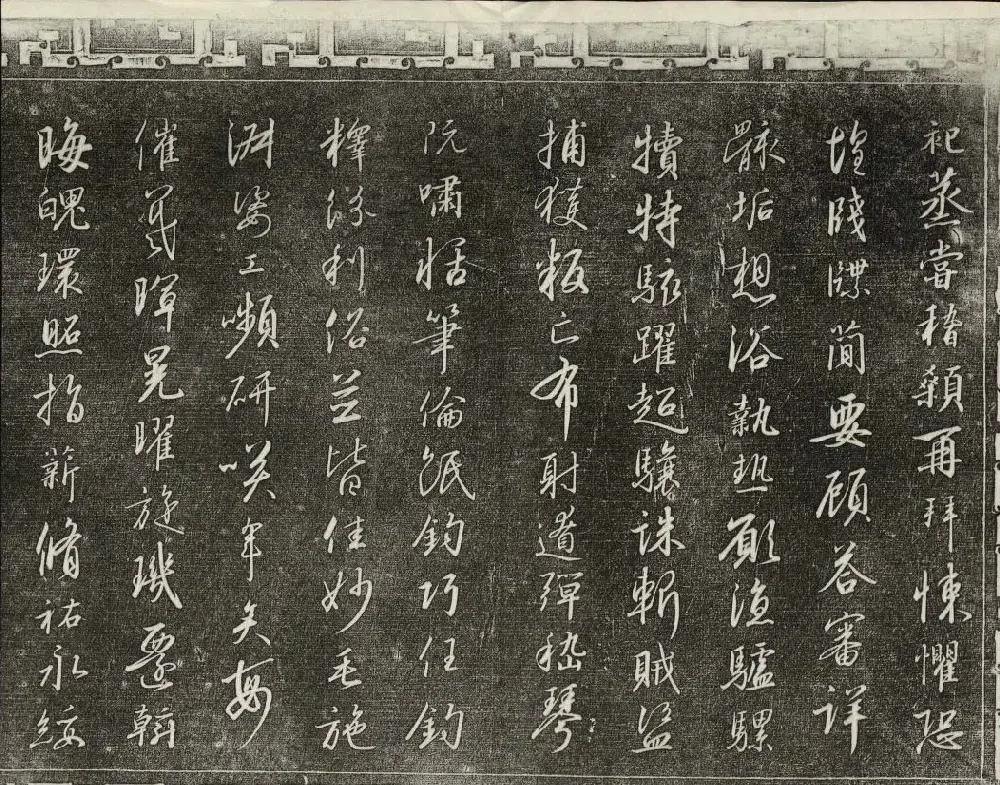 祀蒸嘗稽顙再拜悚懼恐
惶牋牒簡要顧荅審詳
骸垢想浴執熱願涼驢騾
犢特駭躍超驤誅斬賊盜
捕獲叛亡布射遼彈嵇琴
阮嘯恬筆倫紙鈞巧任釣
釋紛利俗並皆佳妙毛施
淑姿工嚬研笑年矢每
催羲暉晃曜旋璣懸斡
晦魄環照指薪脩祐永綏